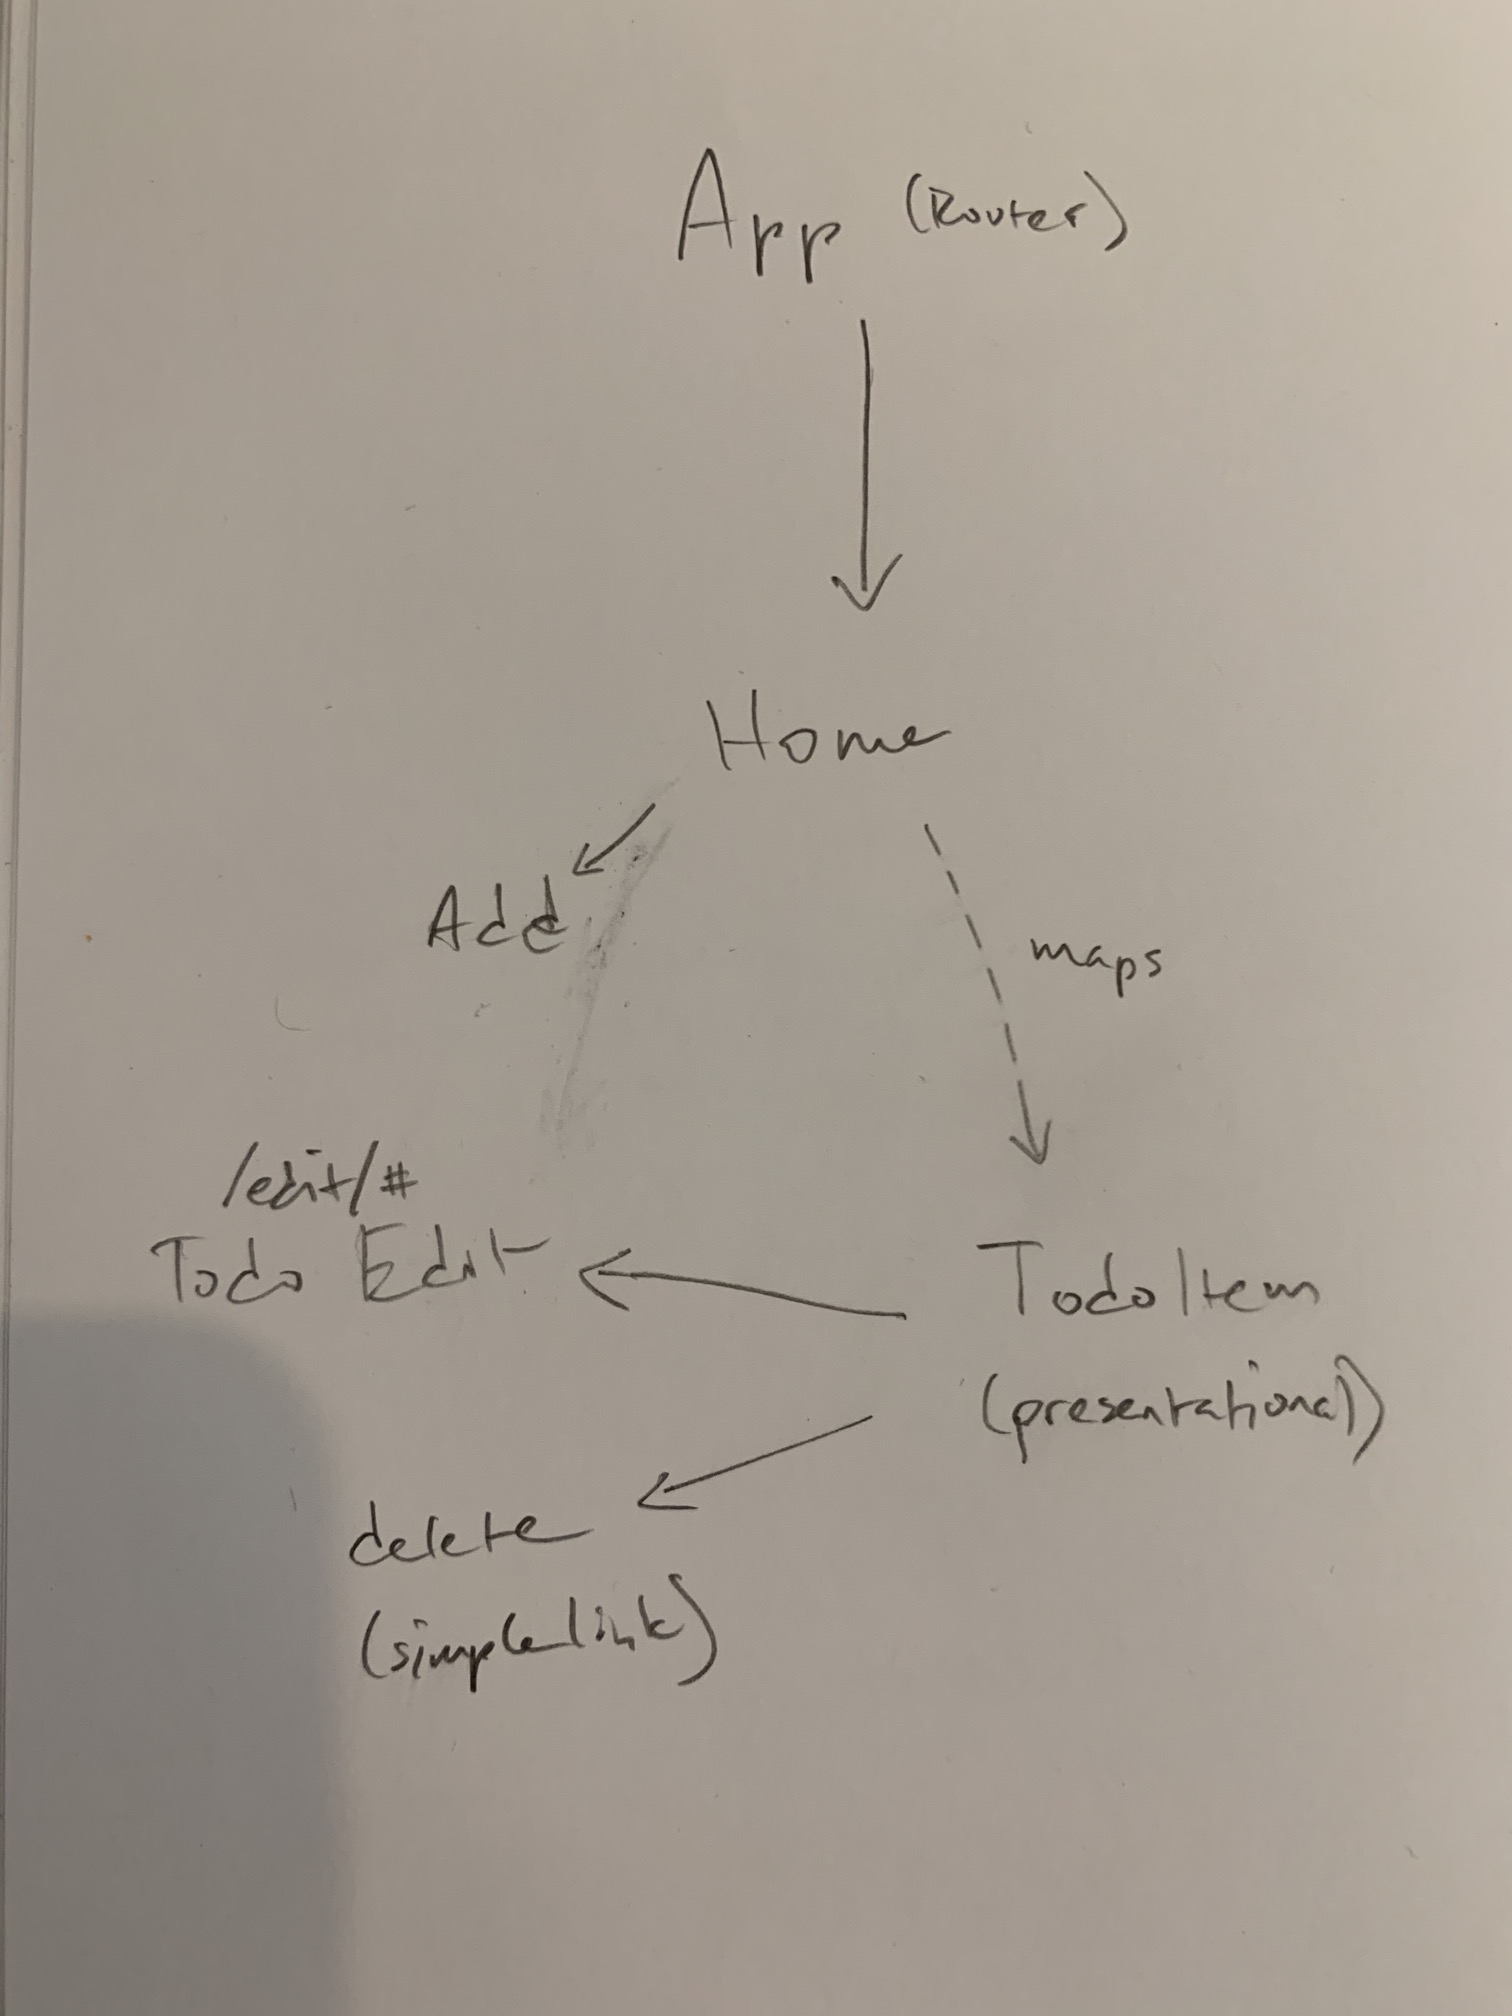 App (Router)
Home
Add
maps
/edit/#
Todo Edit
TodoItem
(presentational)
delete
(simple link)